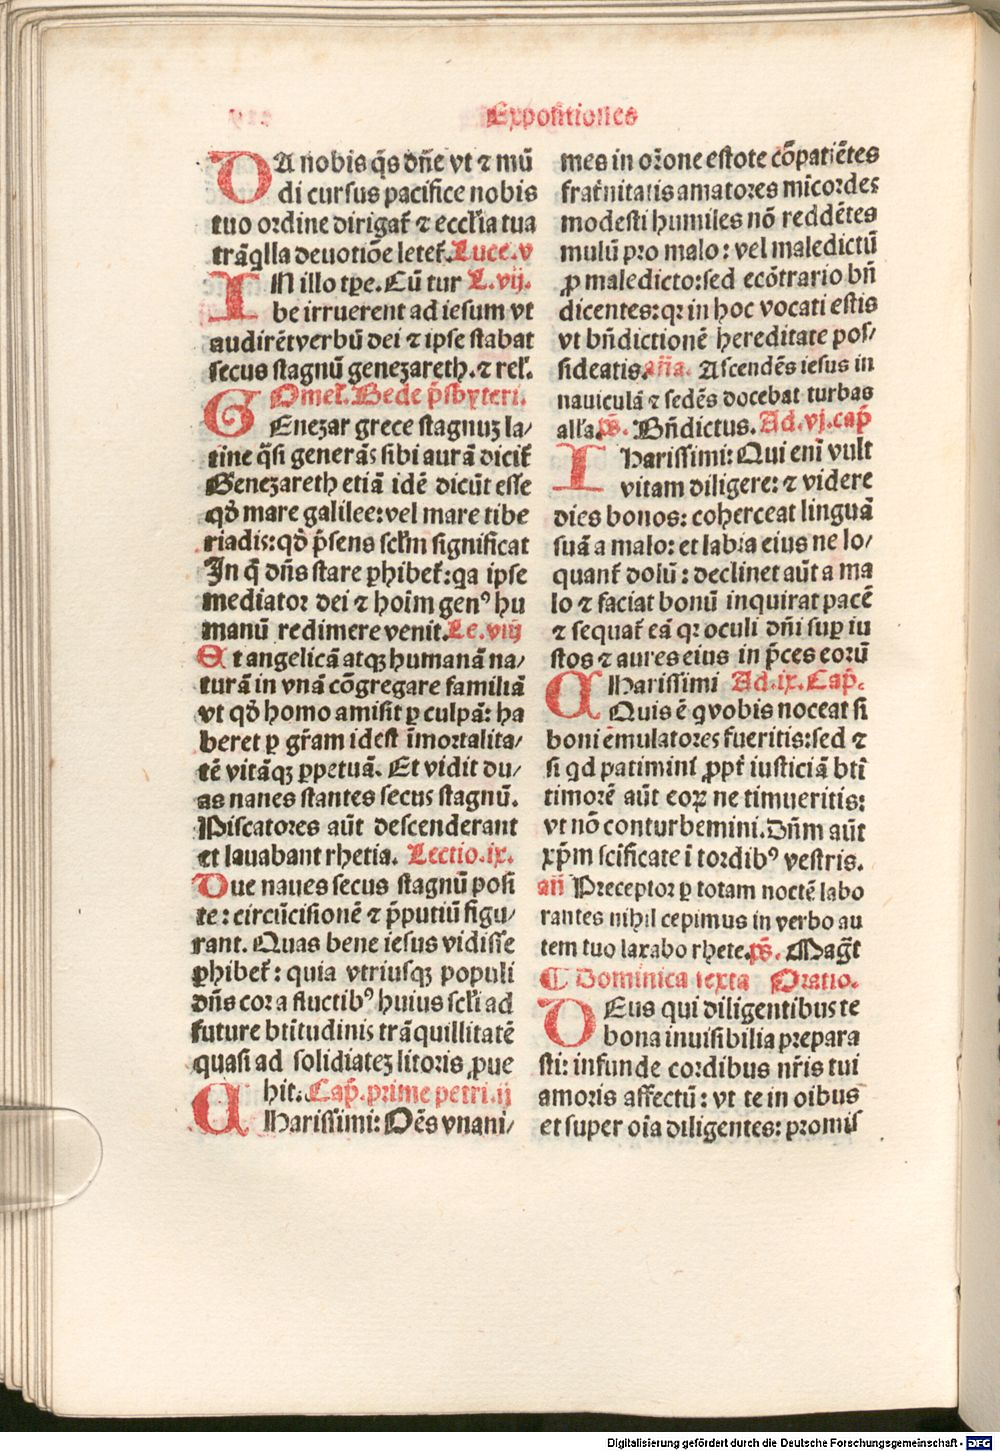 Expositiones
DA nobis q̄s dn̄e vt ⁊ mū
di cursus pacifice nobis
tuo ordine dirigat̃ ⁊ eccłia tua
trāq̇lla deuotiōe letet̃. Luce.v
IN illo tp̄e. Cū tur L.vij.
be irruerent ad iesum vt
audirēt verbū dei ⁊ ipse stabat
secus stagnū genezareth. ⁊ rel̃.
Omel̃. Bede p̄sbyteri.
GEnezar grece stagnuz la/
tine q̄si generās sibi aurā dicit̃
Genezareth etiā idē dicūt esse
qđ mare galilee: vel mare tibe
riadis: qđ p̄sens scl̃m significat
In q̄ dn̄s stare ꝑhibet̃: qa ipse
mediator dei ⁊ hoīm genꝰ hu
manū redimere venit. Le.viij
Et angelicā atqꝫ humanā na/
turā in vnā cōgregare familiā
vt qđ homo amisit ꝑ culpā: ha
beret ꝑ gr̄am idest īmortalita/
tē vitāqꝫ ꝑpetuā. Et vidit du/
as naues stantes secus stagnū.
Piscatores aūt descenderant
et lauabant rhetia. Lectio.ix.
Due naues secus stagnū posi
te: circūcisionē ⁊ p̄putiū figu/
rant. Quas bene iesus vidisse
ꝑhibet̃: quia vtriusqꝫ populi
dn̄s cor a fluctibꝰ huius scl̃i ad
future btītudinis trāquillitatē
quasi ad solidiatez litoris ꝓue
hit. Cap̃. prime petri.ij
CHarissimi: Oēs vnani/
mes in or̄one estote cōpatiētes
frat̃nitatis amatores mīcordes
modesti humiles nō reddētes
malū pro malo: vel maledictū
ꝓ maledicto: sed ecōtrario bn̄
dicentes: qꝛ in hoc vocati estis
vt bn̄dictionē hereditate pos/
sideatis. an̄a. Ascendēs iesus in
nauiculā ⁊ sedēs docebat turbas
alła. p̄s. Bn̄dictus. Ad.vj.cap̃
CHarissimi: Qui enī vult
vitam diligere: ⁊ videre
dies bonos: coherceat linguā
suā a malo: et labia eius ne lo/
quant̃ dolū: declinet aūt a ma
lo ⁊ faciat bonū inquirat pacē
⁊ sequat̃ eā qꝛ oculi dn̄i suꝑ iu
stos ⁊ aures eius in p̄ces eorū
CHarissimi Ad.ix.Cap̃.
Quis ē q̇ vobis noceat si
boni ēmulatores fueritis: sed ⁊
si qd patiminī ꝓpt̃ iusticiā btī
timorē aūt eoꝝ ne timueritis:
vt nō conturbemini. Dn̄m aūt
xp̄m scīficate ī cordibꝰ vestris.
an̄ Preceptor ꝑ totam noctē labo
rantes nihil cepimus in verbo au
tem tuo laxabo rhete. p̄s. Mag̃t
¶ Dominica sexta Oratio.
DEus qui diligentibus te
bona inuisibilia prepara
sti: infunde cordibus nr̄is tui
amoris affectū: vt te in oībus
et super oīa diligentes: promis
Digitalisierung gefördert durch die Deutsche Forschungsgemeinschaft - DFG